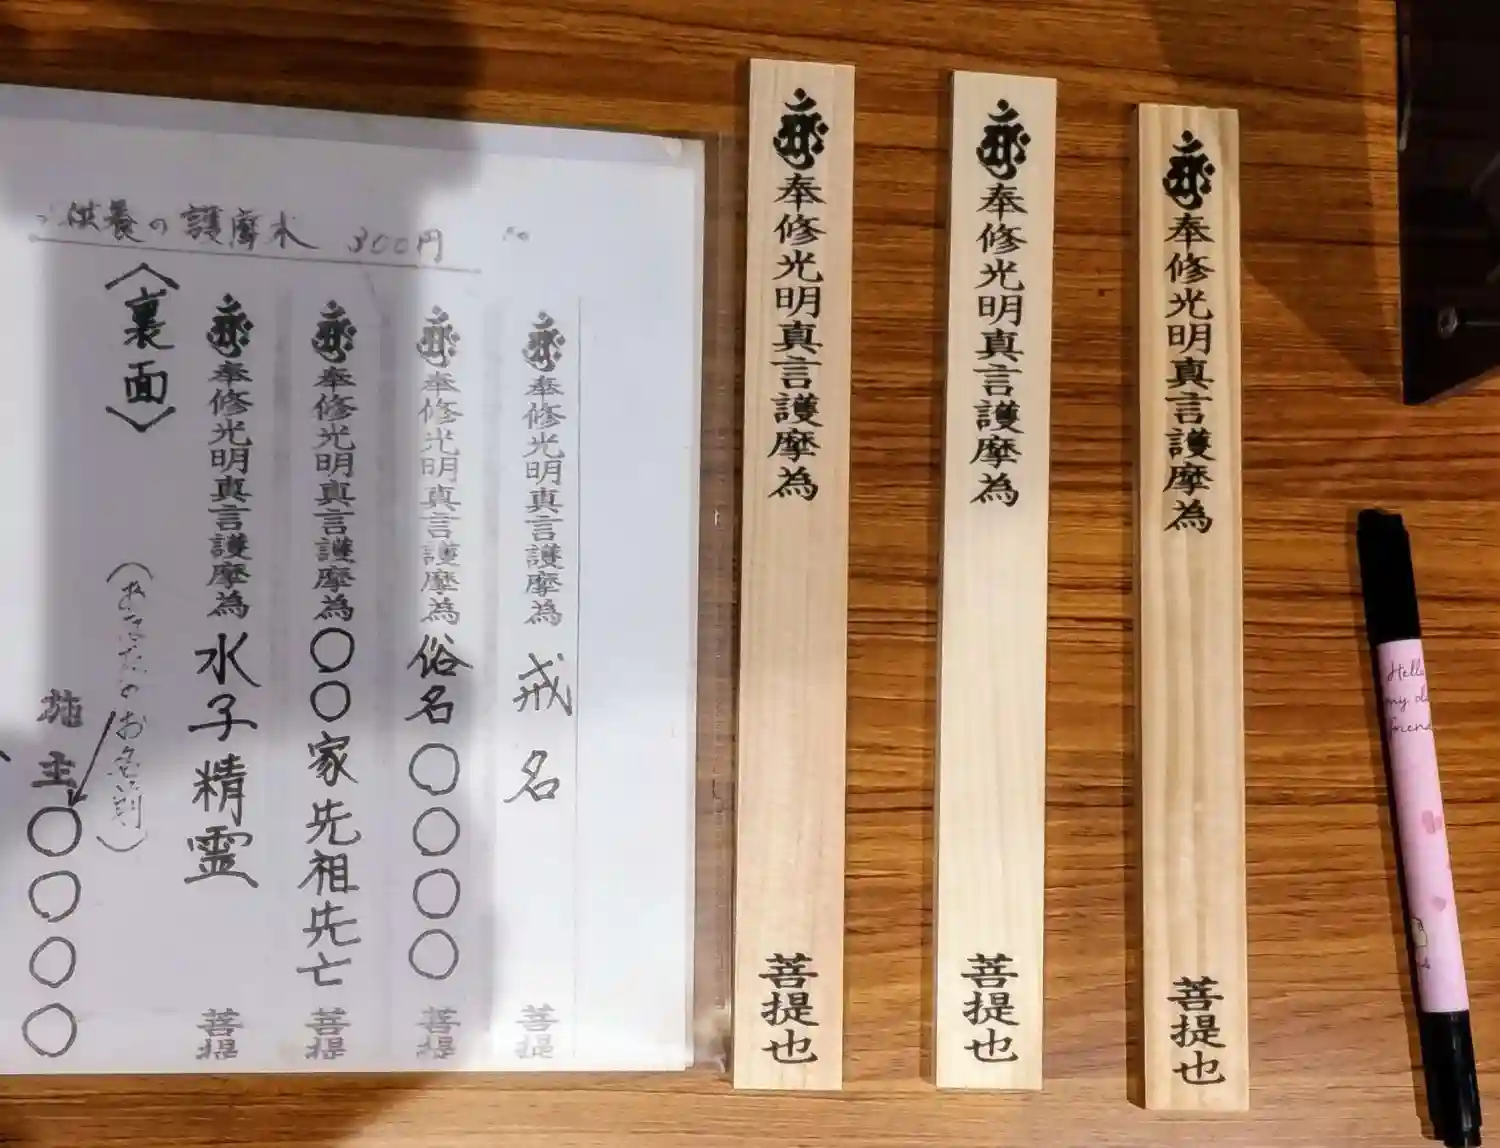 供養の護摩木 300円
奉修光明真言護摩為 戒名 菩提
奉修光明真言護摩為 俗名〇〇〇〇 菩提
奉修光明真言護摩為 〇〇家先祖先亡 菩提
奉修光明真言護摩為 水子精霊 菩提
〈裏面〉
(あなたのお名前)
施主〇〇〇〇
奉修光明真言護摩為 菩提也
奉修光明真言護摩為 菩提也
奉修光明真言護摩為 菩提也
Hello
my d
friend